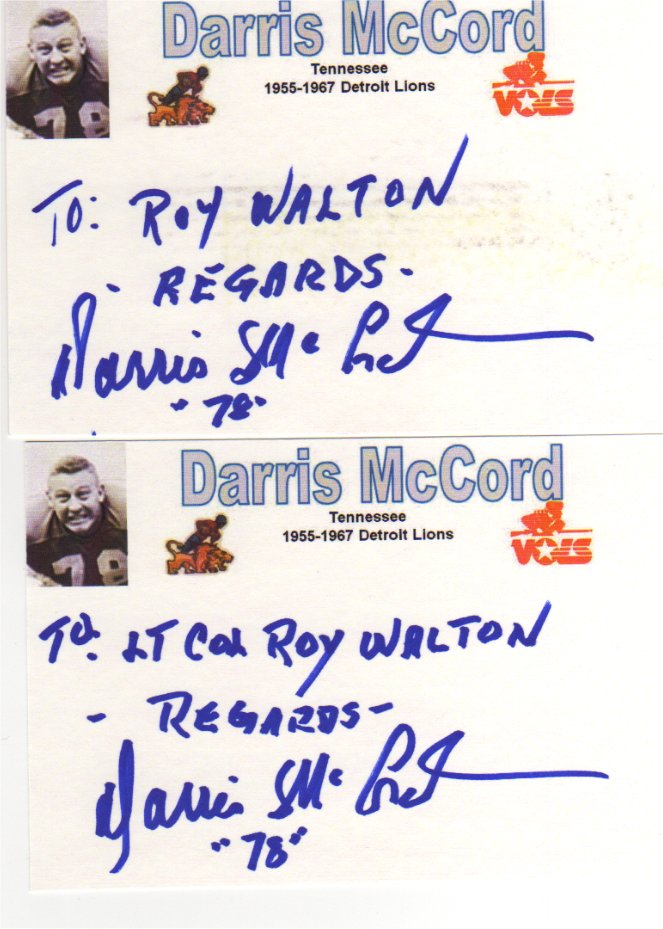 Darris McCord
Tennessee
1955-1967 Detroit Lions
VOLS
78
TO: ROY WALTON
- REGARDS -
Darris McCord
"78"
Darris McCord
Tennessee
1955-1967 Detroit Lions
VOLS
78
TO: LT COL ROY WALTON
- REGARDS -
Darris McCord
"78"